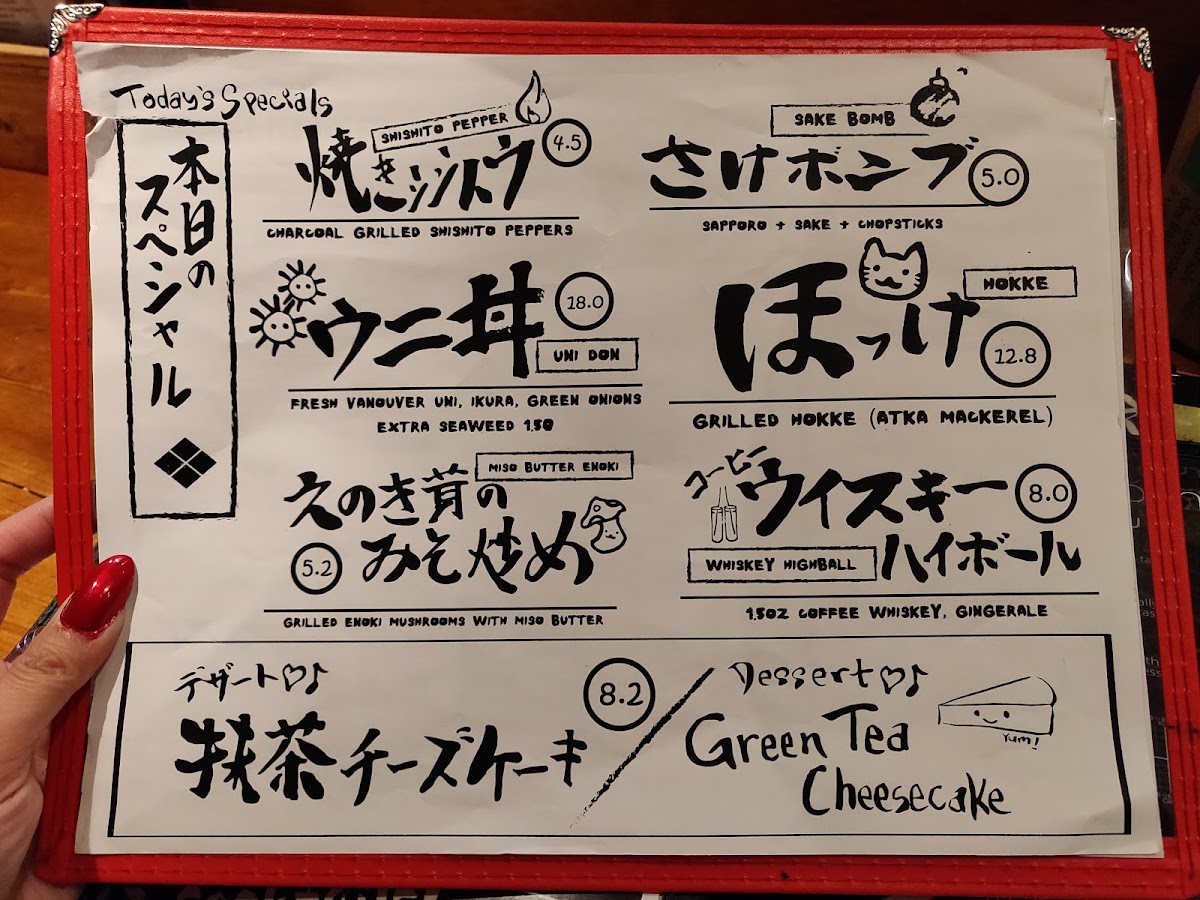 Today's Specials
本日の
スペシャル
SHISHITO PEPPER
焼きシシトウ
4.5
CHARCOAL GRILLED SHISHITO PEPPERS
SAKE BOMB
さけボンブ
5.0
SAPPORO + SAKE + CHOPSTICKS
ウニ丼
18.0
UNI DON
FRESH VANOUVER UNI, IKURA, GREEN ONIONS
EXTRA SEAWEED 1.50
ほっけ
HOKKE
12.8
GRILLED HOKKE (ATKA MACKEREL)
MISO BUTTER ENOKI
えのき茸の
みそ炒め
5.2
GRILLED ENOKI MUSHROOMS WITH MISO BUTTER
コーヒー
ウイスキー
8.0
WHISKEY HIGHBALL
ハイボール
1.5OZ COFFEE WHISKEY, GINGERALE
デザート♡♪
抹茶チーズケーキ
8.2
Dessert♡♪
Green Tea
Cheesecake
Yum!